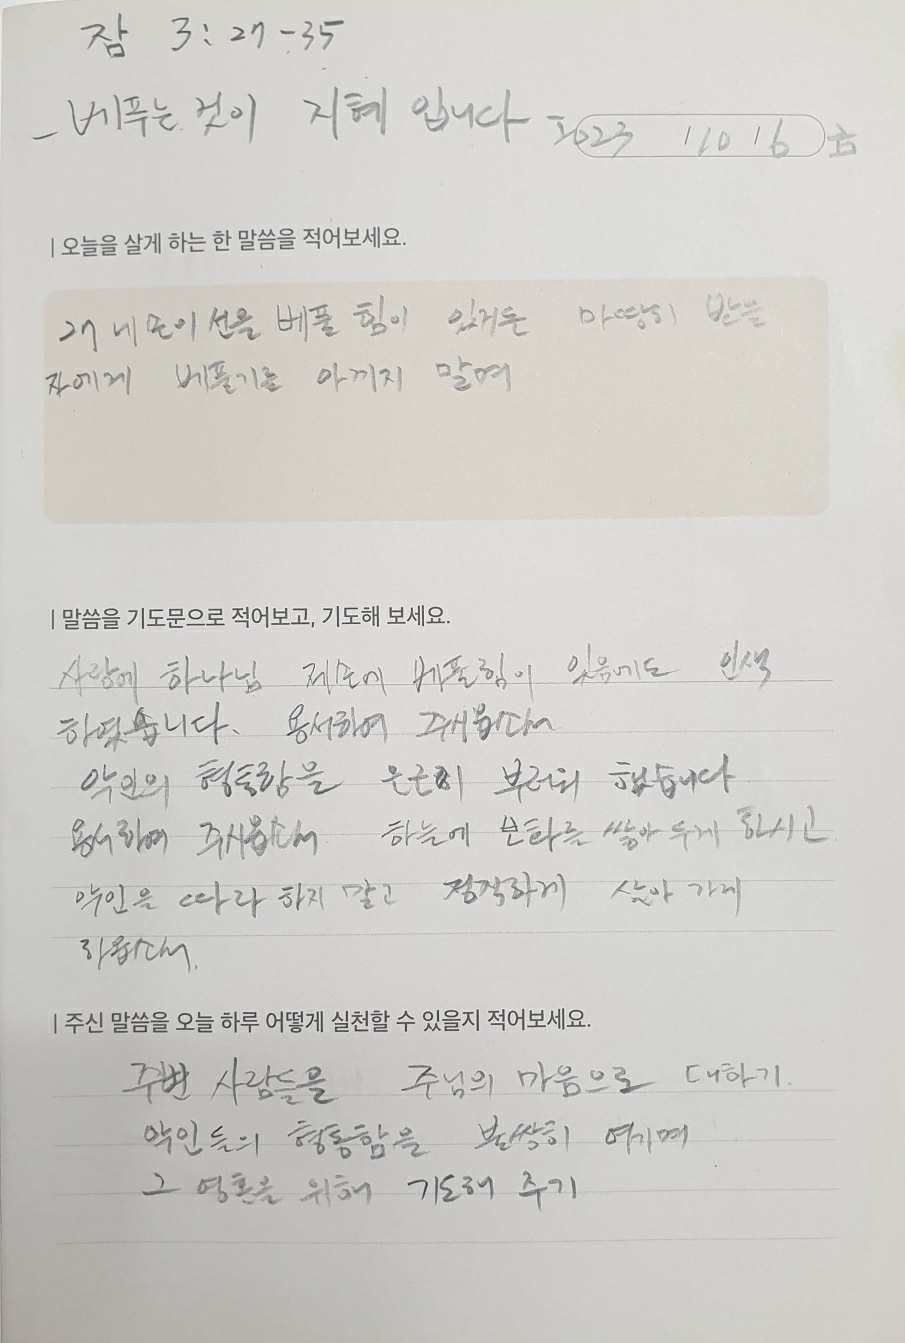 잠 3:27-35
- 베푸는 것이 지혜 입니다 2023 1/0 16 금
| 오늘을 살게 하는 한 말씀을 적어보세요.
27 네 손이 선을 베풀 힘이 있거든 마땅히 받을
자에게 베풀기를 아끼지 말며
| 말씀을 기도문으로 적어보고, 기도해 보세요.
사랑에 하나님 제손에 베풀힘이 있음에도 인색
하였습니다. 용서하여 주시옵소서
악인의 형통함을 은근히 부러워 했습니다
용서하여 주시옵소서 하늘에 보화를 쌓아 두게 하시고
악인을 따라 하지 말고 정직하게 살아 가게
하옵소서.
| 주신 말씀을 오늘 하루 어떻게 실천할 수 있을지 적어보세요.
주변 사람들을 주님의 마음으로 대하기.
악인들의 형통함을 불쌍히 여기며
그 영혼을 위해 기도해 주기